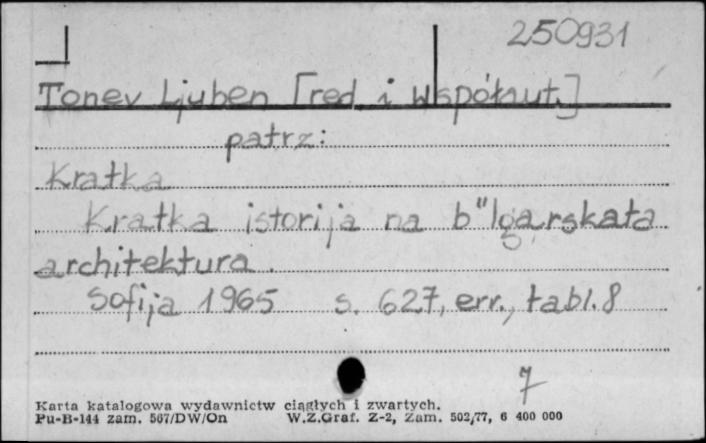 250931
Tonev Ljuben [red. i współaut.]
patrz:
Kratka
Kratka istorija na b"lgarskata
architektura.
Sofija 1965 s. 627, err., tabl. 8
7
Karta katalogowa wydawnictw ciągłych i zwartych.
Pu-B-144 zam. 567/DW/On W.Z.Graf. Z-2, Zam. 502/77, 6 400 000